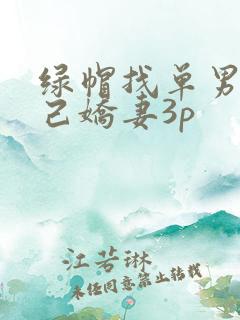 绿帽找单男
己嬌妻3p
江若琳
未经同意禁止转载